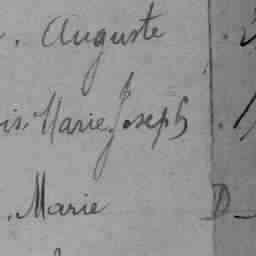 . Auguste
is, Marie Joseph
. Marie D